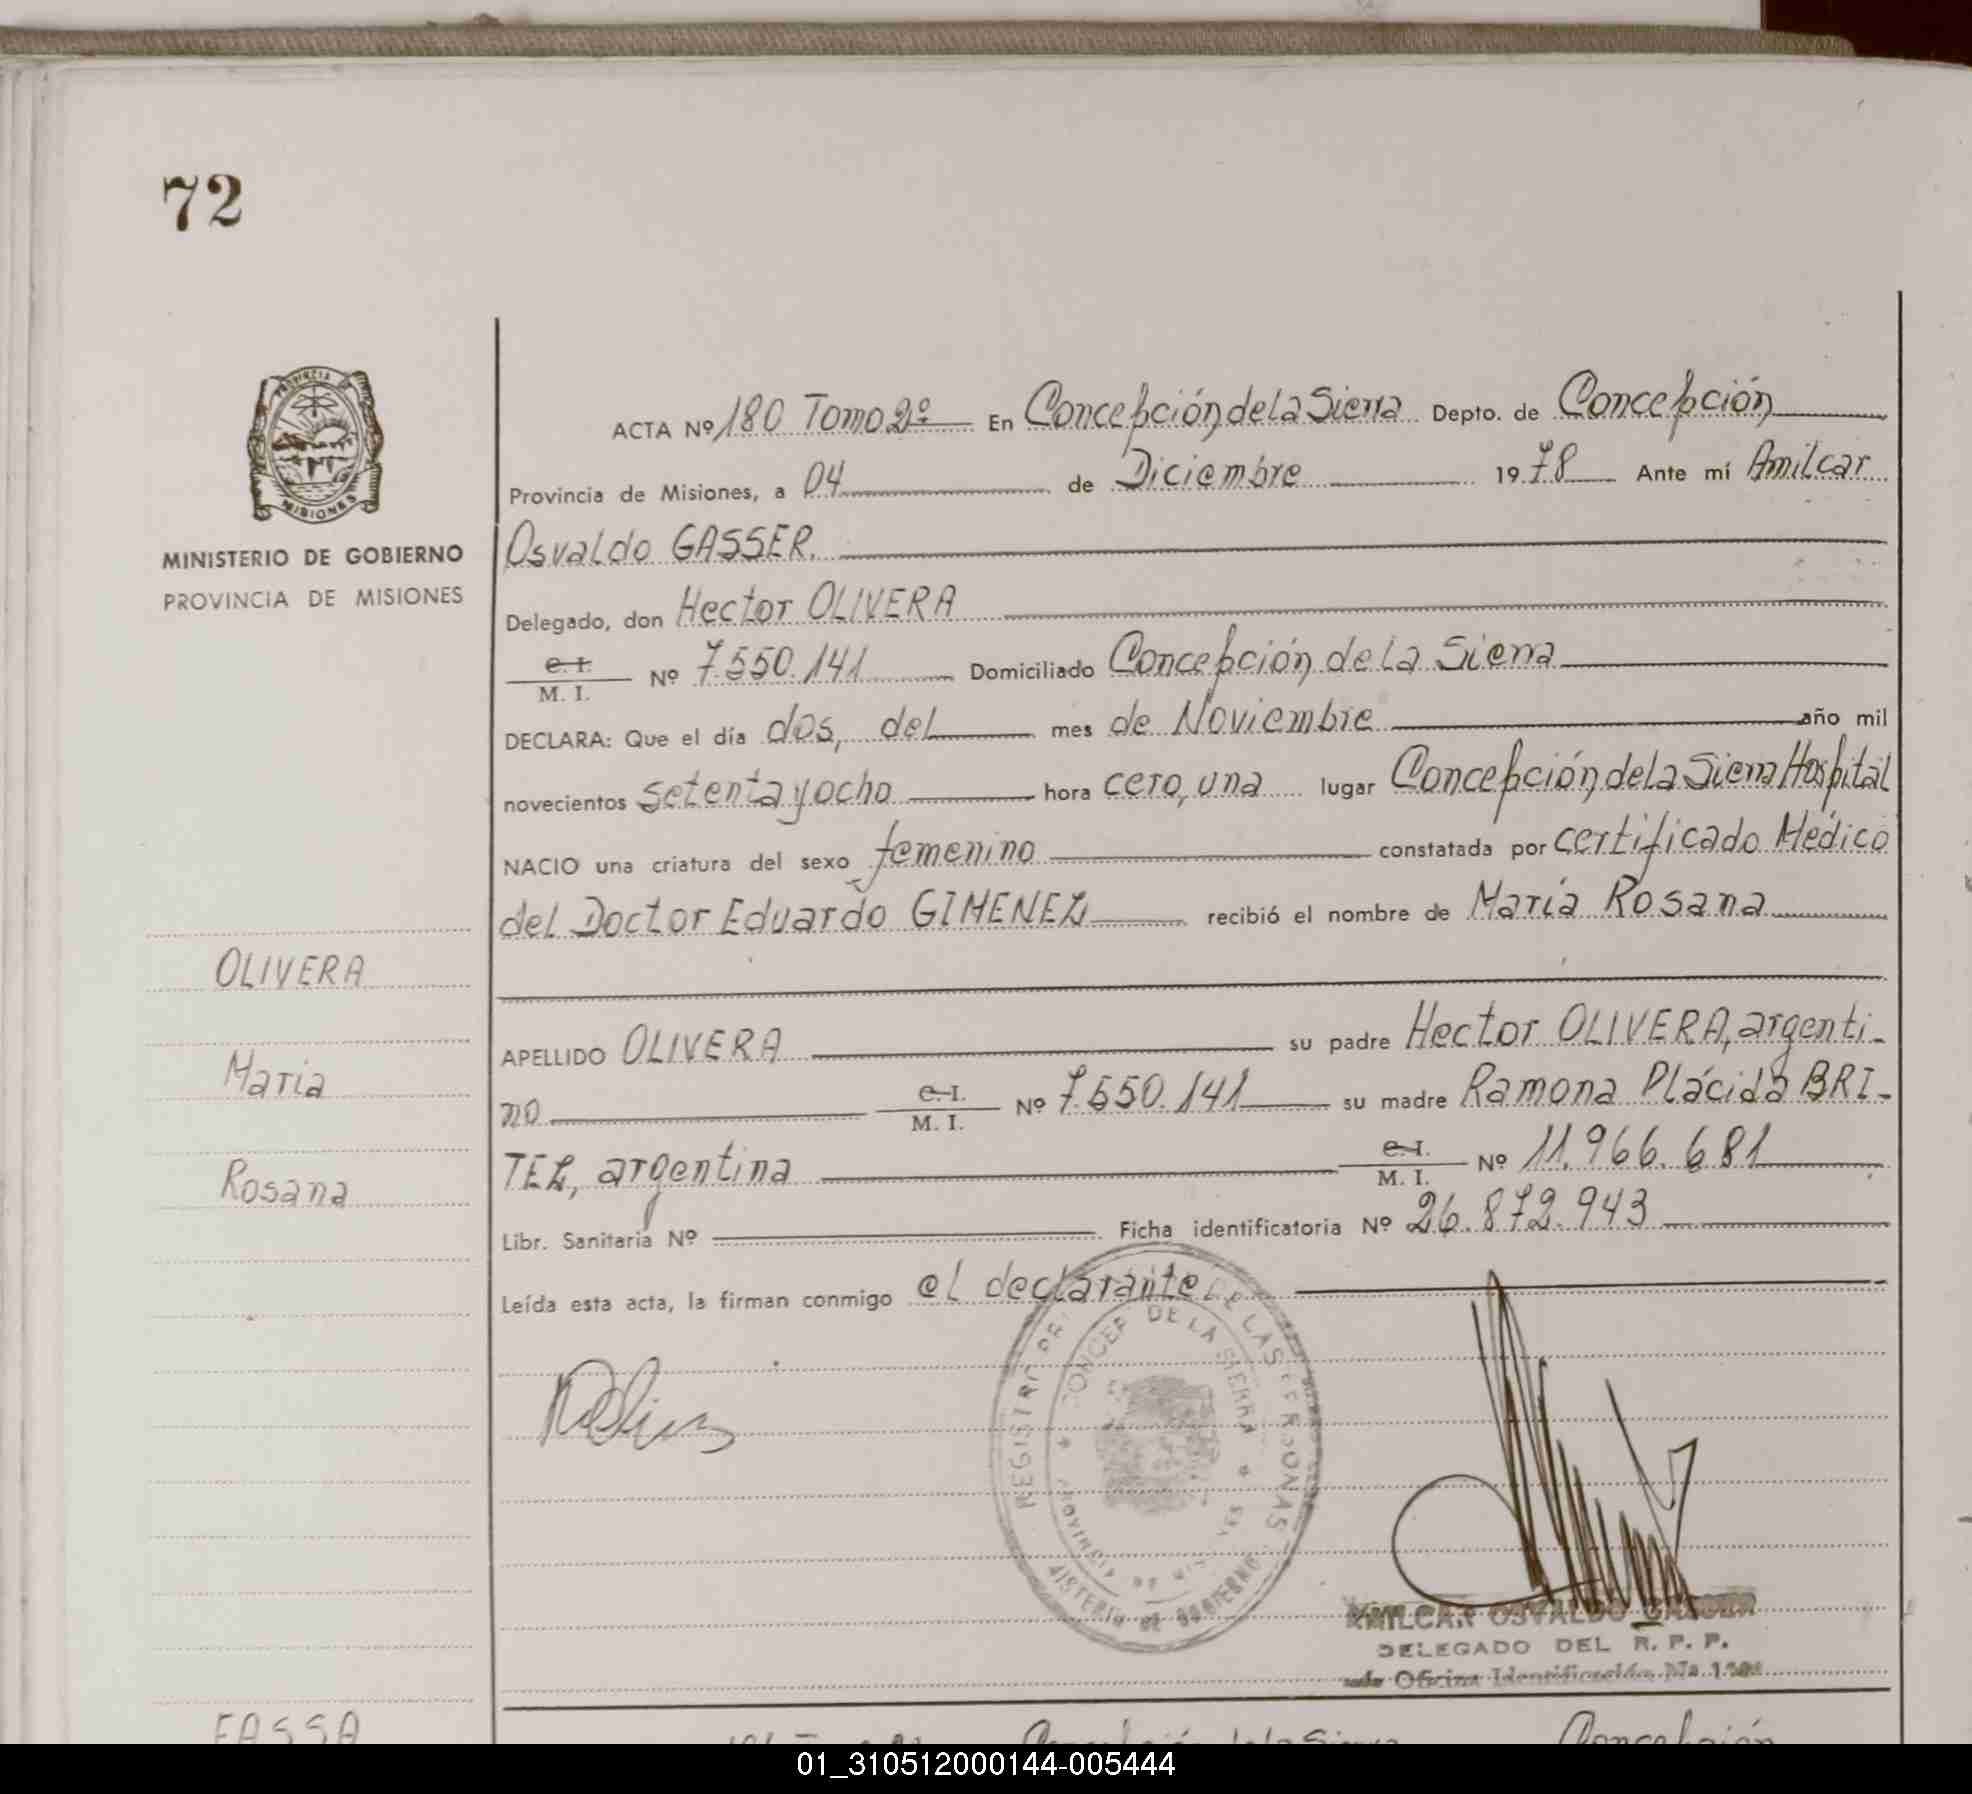 72
PROVINCIA
MISIONES
MINISTERIO DE GOBIERNO
PROVINCIA DE MISIONES
OLIVERA
Maria
Rosana
ACTA Nº 180 Tomo 2º En Concepción de la Sierra Depto. de Concepción
Provincia de Misiones, a 04 de Diciembre 1978 Ante mí Amilcar
Osvaldo GASSER.
Delegado, don Hector OLIVERA
C. I.
M. I. Nº 7.550.141 Domiciliado Concepción de la Sierra
DECLARA: Que el día dos, del mes de Noviembre año mil
novecientos setenta y ocho hora cero, una lugar Concepción de la Sierra Hospital
NACIO una criatura del sexo femenino constatada por certificado Médico
del Doctor Eduardo GIMENEZ recibió el nombre de María Rosana
APELLIDO OLIVERA su padre Hector OLIVERA, argenti-
no C. I.
M. I. Nº 7.550.141 su madre Ramona Plácida BRI-
TEZ, argentina C. I.
M. I. Nº 11.966.681
Libr. Sanitaria Nº Ficha identificatoria Nº 26.872.943
Leída esta acta, la firman conmigo el declarante
DE LAS PERSONAS
CONCEP DE LA SIERRA
AMILCAR OSVALDO GASSER
DELEGADO DEL R. P. P.
FASSA
Concepción de la Sierra Concepción
01_310512000144-005444